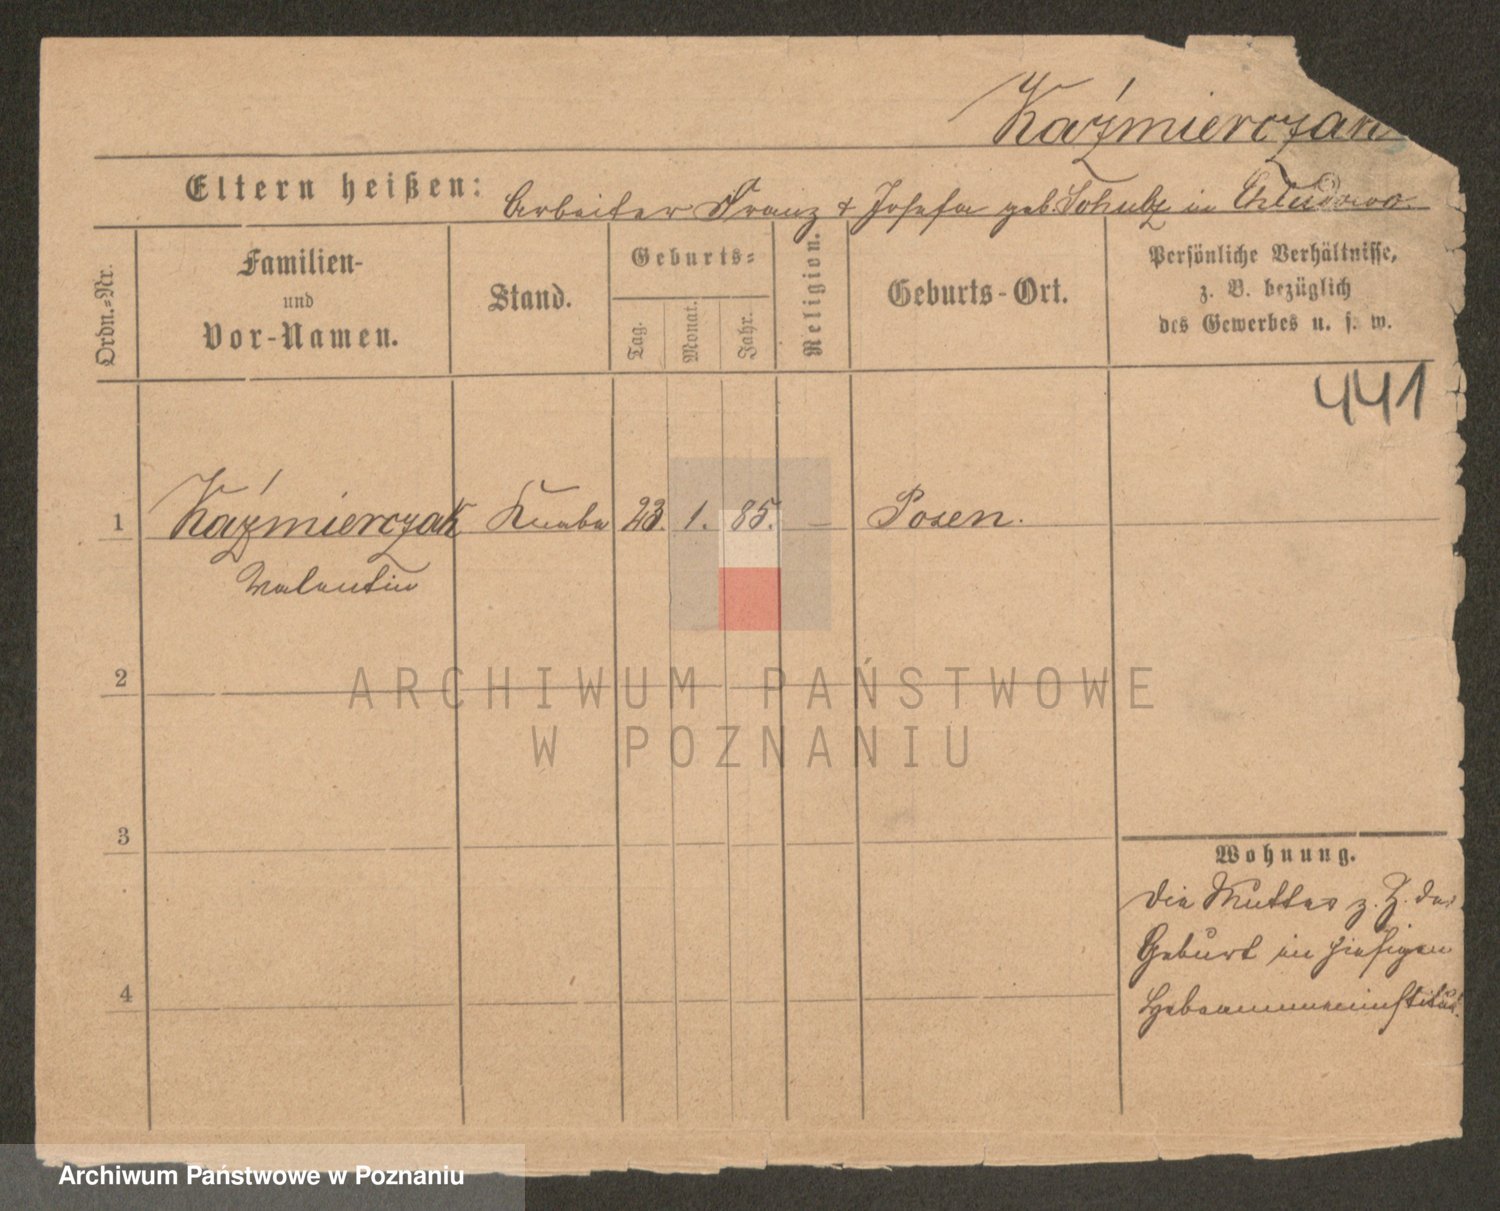 Kaźmierczak
Eltern heißen: Arbeiter Franz & Josefa geb. Schulz in Chludowo.
Ordn.-Nr.
Familien-
und
Vor-Namen.
Stand.
Geburts-
Tag.
Monat.
Jahr.
Religion.
Geburts-Ort.
Persönliche Verhältnisse,
z. B. bezüglich
des Gewerbes u. s. w.
441
1 Kaźmierczak Knabe 23. 1. 85. — Posen.
Valentin
2
ARCHIWUM PAŃSTWOWE
W POZNANIU
3
Wohnung.
Die Mutter z. Z. der
Geburt im hiesigen
4
Hebammeninstitut.
Archiwum Państwowe w Poznaniu